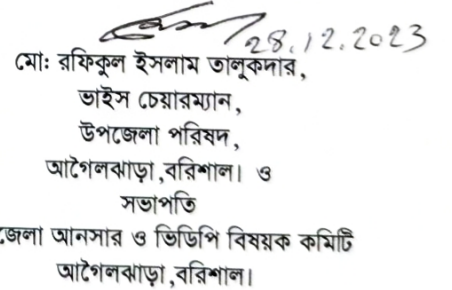 28.12.2023
মো: রফিকুল ইসলাম তালুকদার,
ভাইস চেয়ারম্যান,
উপজেলা পরিষদ,
আগৈলঝাড়া,বরিশাল। ও
সভাপতি
জেলা আনসার ও ভিডিপি বিষয়ক কমিটি
আগৈলঝাড়া,বরিশাল।